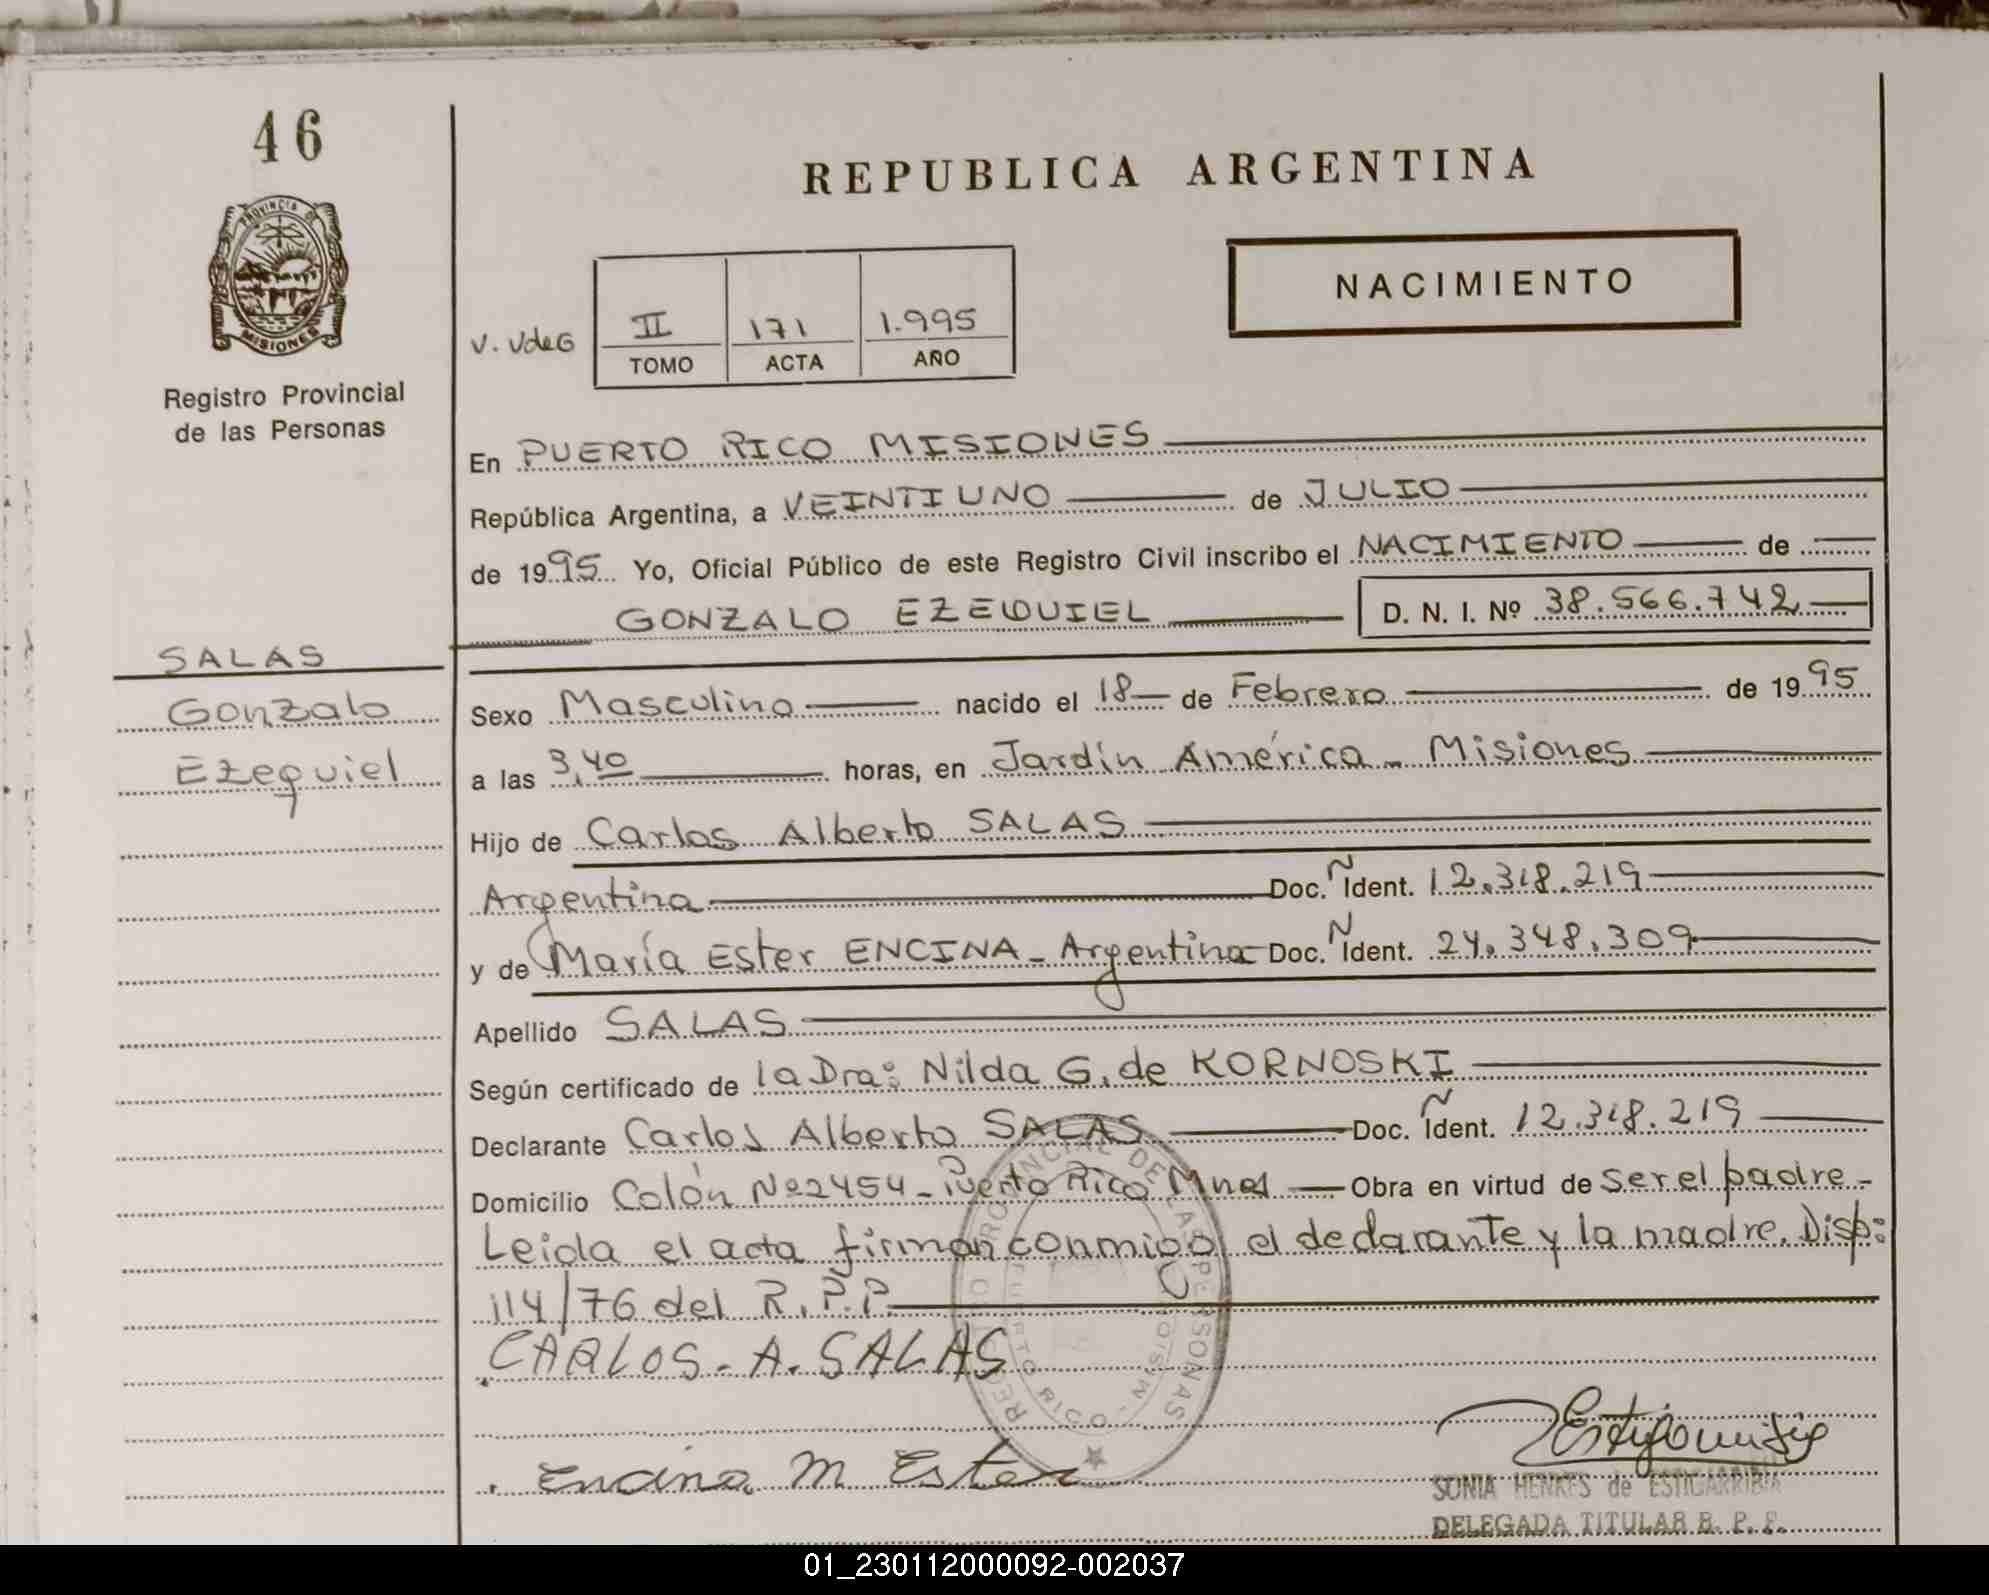 46
PROVINCIA DE
MISIONES
Registro Provincial
de las Personas
REPUBLICA ARGENTINA
NACIMIENTO
V. VdeG
II 171 1.995
TOMO ACTA AÑO
En PUERTO RICO MISIONES
República Argentina, a VEINTIUNO de JULIO
de 1995 Yo, Oficial Público de este Registro Civil inscribo el NACIMIENTO de
GONZALO EZEQUIEL D. N. I. Nº 38.566.742
SALAS
Gonzalo
Ezequiel
Sexo Masculino nacido el 18 de Febrero de 1995
a las 3,40 horas, en Jardín América - Misiones
Hijo de Carlos Alberto SALAS
Argentina Doc. Ñ Ident. 12.318.219
y de María Ester ENCINA - Argentina Doc. N Ident. 24.348.309
Apellido SALAS
Según certificado de la Dra: Nilda G. de KORNOSKI
Declarante Carlos Alberto SALAS Doc. Ñ Ident. 12.318.219
Domicilio Colón Nº 2454 - Puerto Rico Mnes Obra en virtud de ser el padre -
Leida el acta firman conmigo el declarante y la madre. Disp:
114/76 del R.P.P.
CARLOS - A. SALAS
REGISTRO PROVINCIAL DE LAS PERSONAS
PUERTO RICO - MISIONES
Encina M Ester
SONIA HENKES de ESTIGARRIBIA
DELEGADA TITULAR R. P. P.
01_230112000092-002037